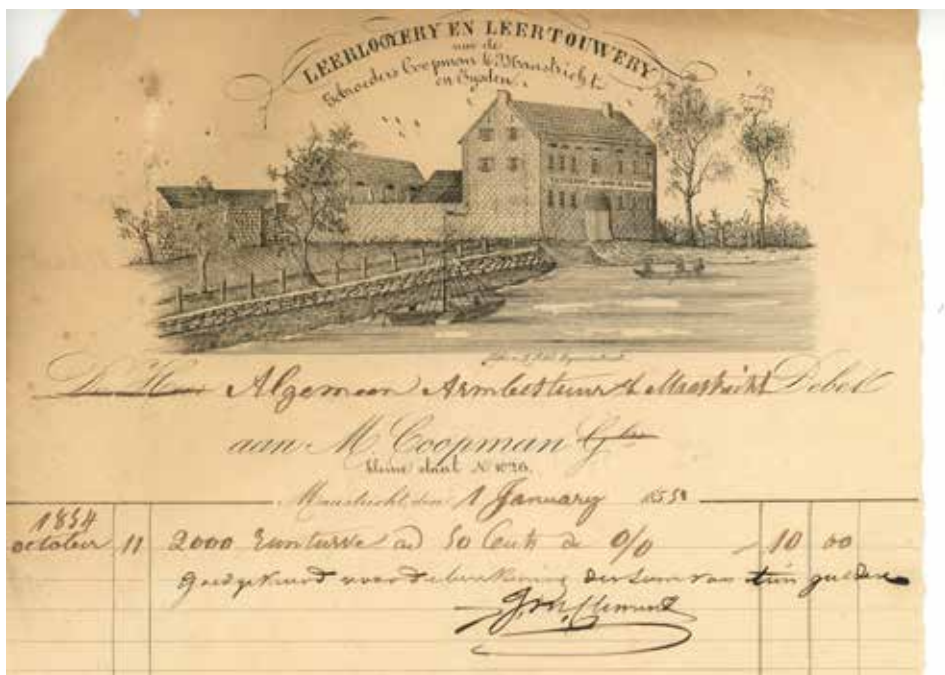 LEERLOOYERY EN LEERTOUWERY
van de
Gebroeders Coopman te Maastricht
en Eysden.
Algemeen Armbestuur te Maastricht Debet
aan M. Coopman Gbrs
kleine staat N 1020.
Maastricht, den 1 January 185
1854
october 11 2000 ad 50 Cents de 0/0 10 00
Goedgekeurd voor de berekening der som van tien gulden
Clement